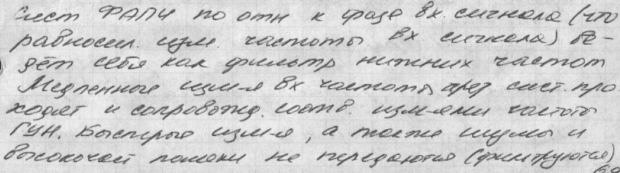 сист ФАПЧ по отн к фазе вх. сигнала (что
равносил. изм. частоты вх сигнала) ве-
дёт себя как фильтр нижних частот
Медленные изм-я вх частоты чрез сист. про
ходят и сопровожд. соотв. изм-ями частоты
ГУН. Быстрые изм-я, а также шумы и
высокочаст помехи не передаются (фильтруются)